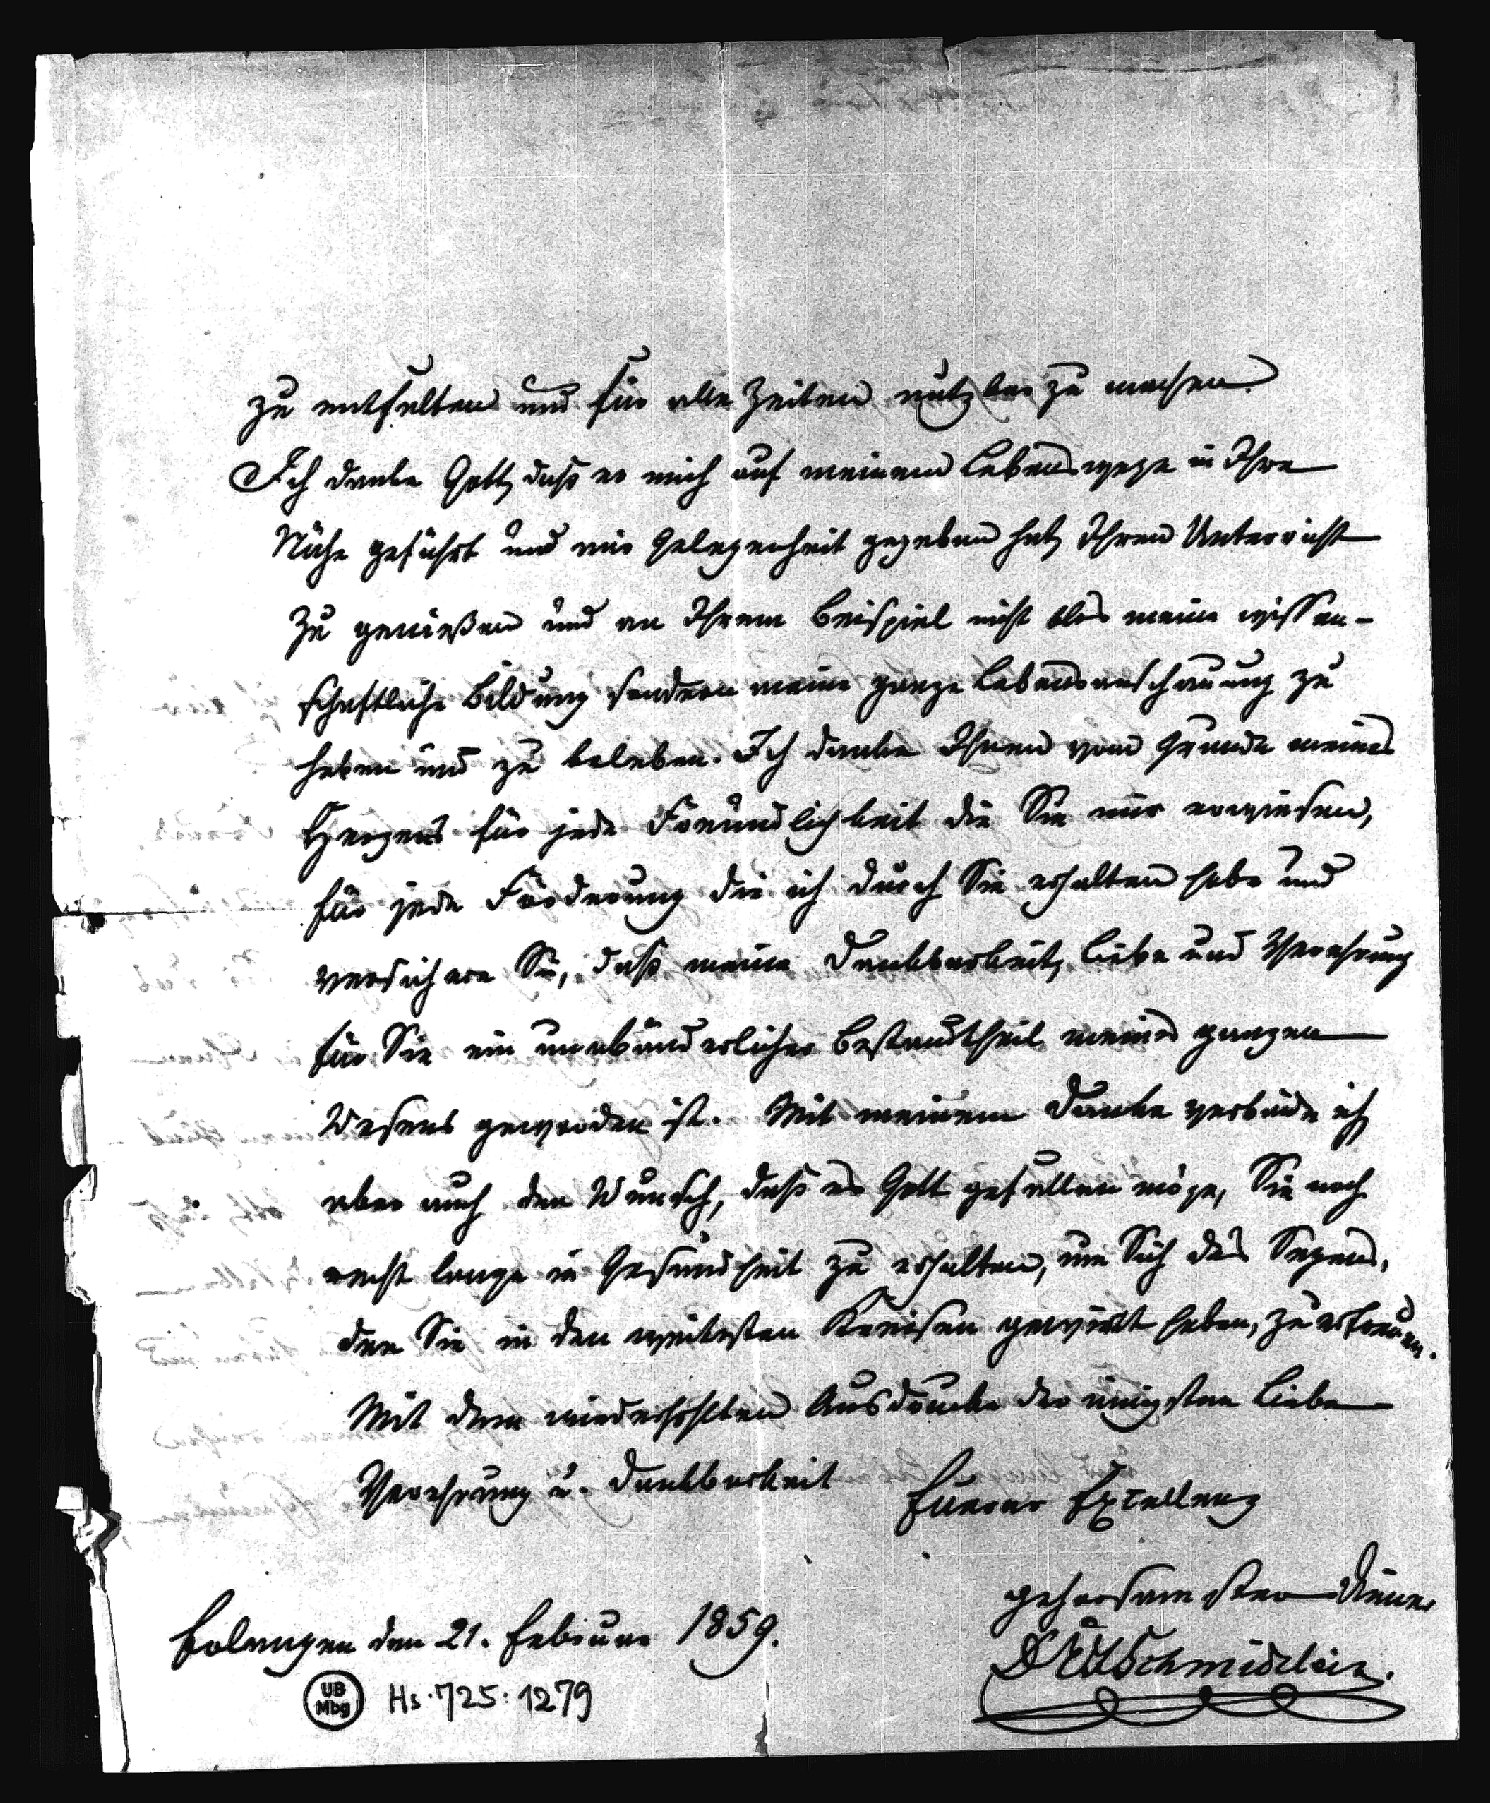 zu entfalten und für alle Zeiten nutzbar zu machen
Ich danke Gott, daß er mich auf meinem Lebenswege in Ihre
Nähe geführt und mir Gelegenheit gegeben hat, Ihren Unterricht
zu genießen und an Ihrem Beispiel nicht blos meine wissen-
schaftliche Bildung sondern meine ganze Lebensanschauung zu
heben und zu beleben. Ich danke Ihnen vom Grunde meines
Herzens für jede Freundlichkeit die Sie mir erwiesen,
für jede Förderung die ich durch Sie erhalten habe und
versichere Sie, daß meine Dankbarkeit, Liebe und Verehrung
für Sie ein unabänderlicher Bestandtheil meines ganzen
Wesens geworden ist. Mit meinem Danke verbinde ich
aber auch den Wunsch, daß es Gott gefallen möge, Sie noch
recht lange in Gesundheit zu erhalten, um Sich des Segens,
den Sie in den weitesten Kreisen gewirkt haben, zu erfreuen.
Mit dem wiederholten Ausdrucke der innigsten Liebe
Verehrung u. Dankbarkeit
Euerer Excellenz
gehorsamster Diener
Schmidtlein.
Erlangen den 21. Februar 1859.
UB
Mbg
Hs. 725:1279